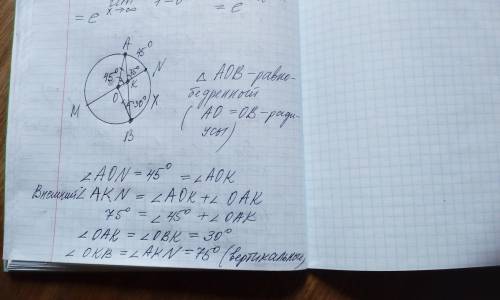 = e lim x→∞ = e
A
45°
45° 75° N
O K
M 30° X
B
△ AOB - равно-
бедренный
( AO = OB - ради-
усы)
∠AON = 45° = ∠AOK
Внешний ∠AKN = ∠AOK + ∠OAK
75° = ∠45° + ∠OAK
∠OAK = ∠OBK = 30°
∠OKB = ∠AKN = 75° (вертикальные)